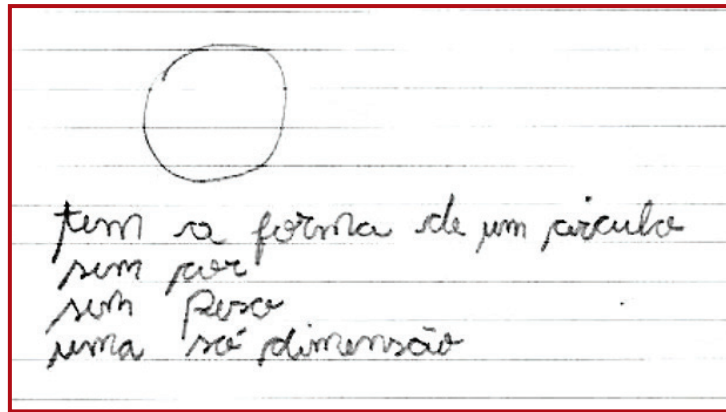 tem a forma de um circulo
sem cor
sem peso
uma só dimensão